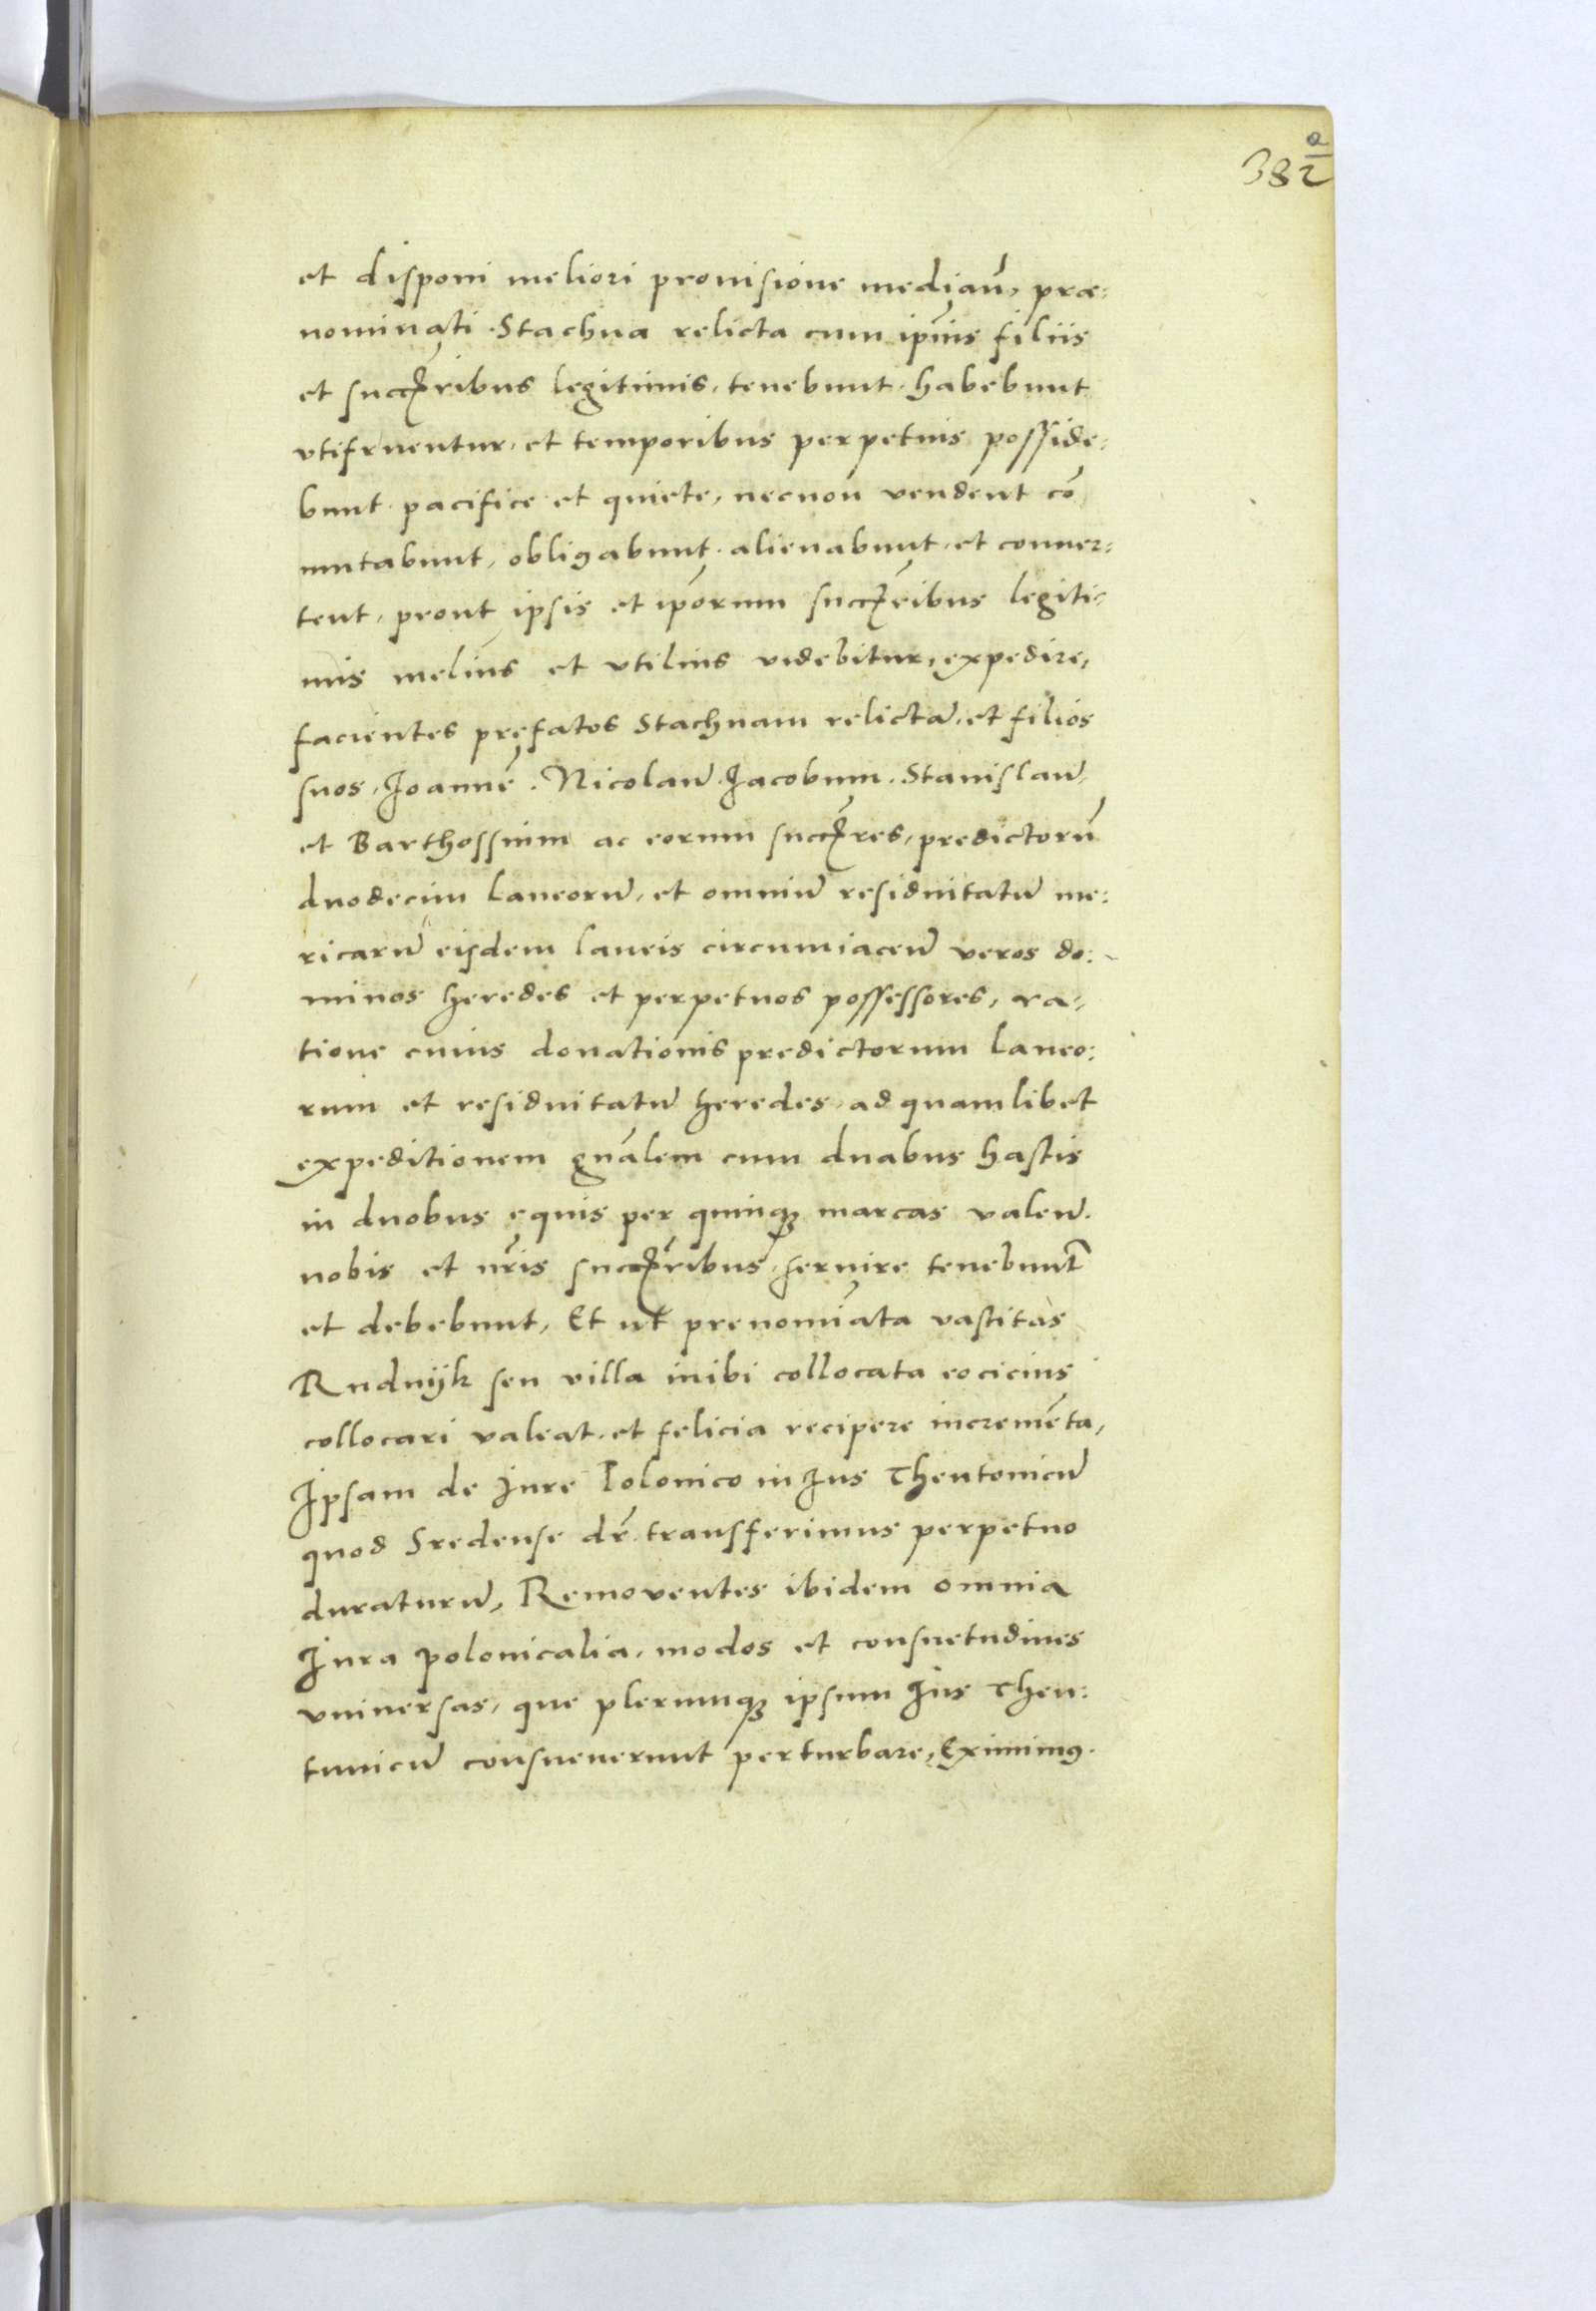 382
a
et disponi meliori prouisione mediañ, præ:
nominati Stachna relicta cum ip̃ius filiis
et succ̃ribus legitimis, tenebunt, habebunt
vtifruentur, et temporibus perpetuis posside:
bunt pacifice et quiete, necnon vendent cõ
mutabunt, obligabunt, alienabunt, et conuer:
tent, prout ipsis et ip̃orum succ̃ribus legiti:
mis melius et vtilius videbitur, expedire,
facientes pręfatos Stachnam relictã, et filios
suos, Joannẽ. Nicolaũ Jacobum. Stanislaũ,
et Barthossium ac eorum succ̃res, predictorũ
duodecim Laneorũ, et omniũ residuitatũ me:
ricarũ eisdem laneis circumiaceñ veros do:
minos heredes et perpetuos possessores, ra:
tione cuius donationis predictorum Laneo:
rum et residuitatũ heredes, ad quamlibet
expeditionem gñalem cum duabus hastis
in duobus ęquis per quinqꝫ marcas valeñ.
nobis et nr̃is succ̃ribus, seruire tenebunt
et debebunt, Et ut prenomĩata vastitas
Rudnijk seu villa inibi collocata eocicius
collocari valeat, et felicia recipere incremẽta,
Ipsam de Jure Polonico in Jus Theutonicũ
quod Sredense dr̃ transferimus perpetuo
duraturũ, Removentes ibidem omnia
Jura polonicalia, modos et consuetudines
vniuersas, que plerumqꝫ ipsum Jus Theu:
tunicũ consueuerunt perturbare, Eximimꝰ.